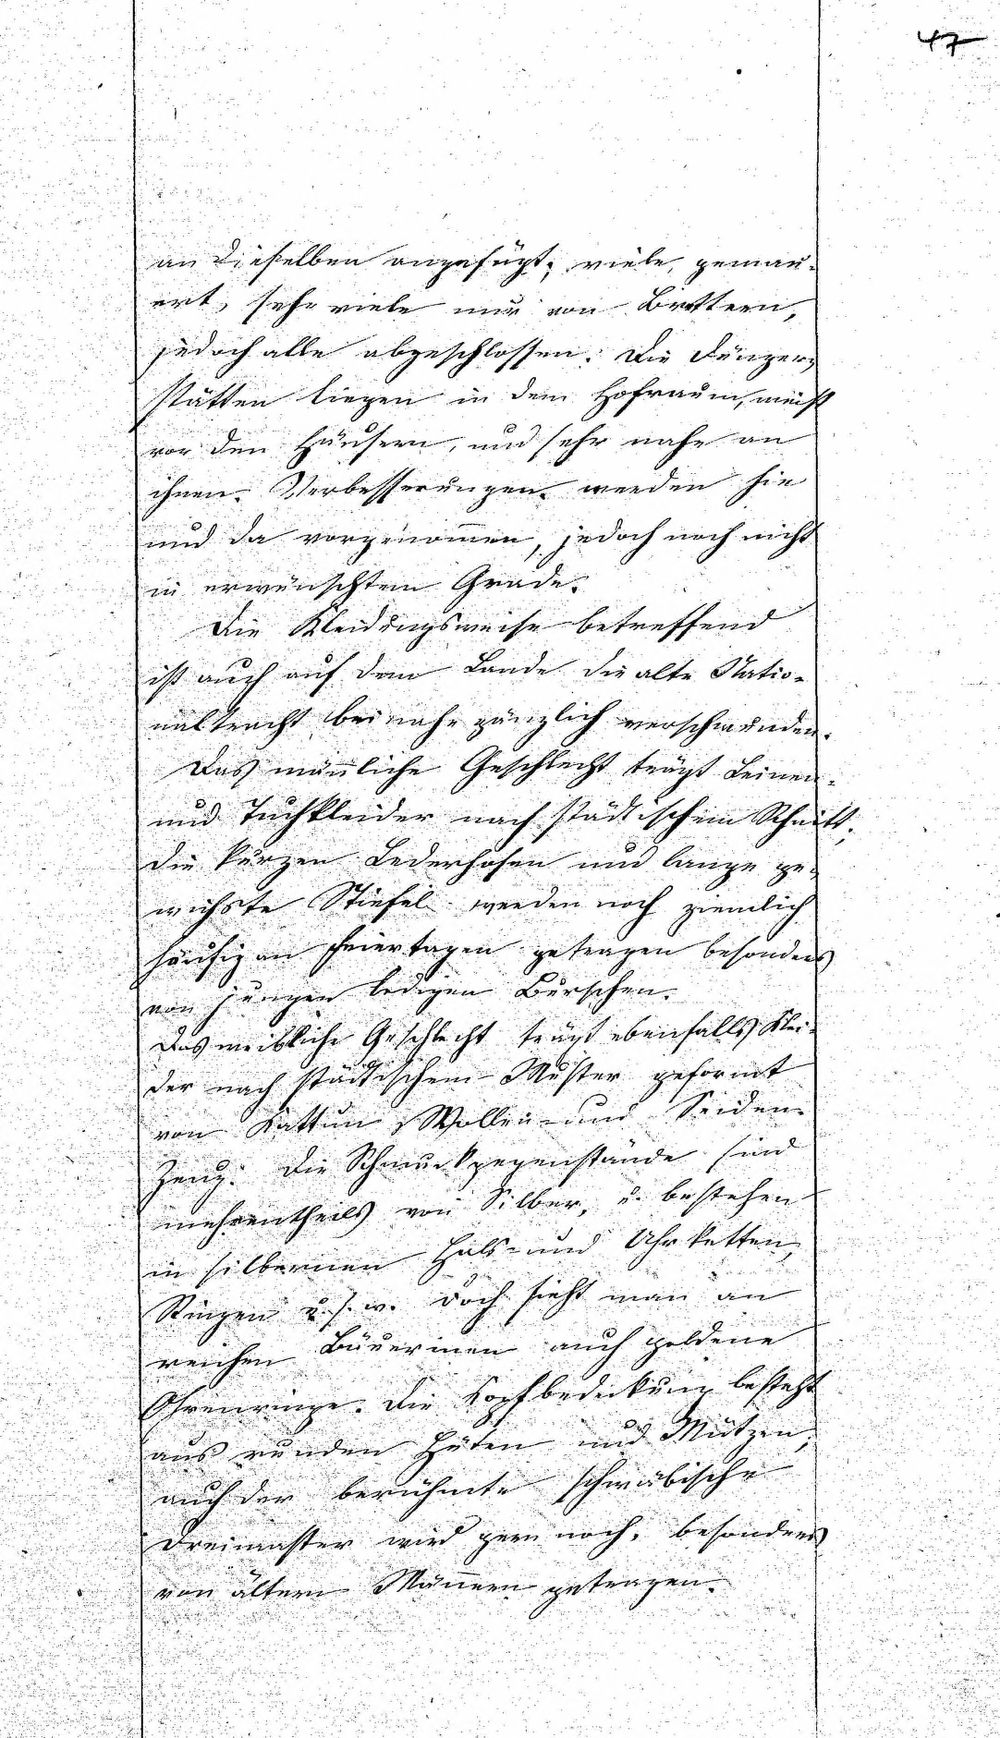 47
an dieselben angefügt; viele, gemau-
ert, sehr viele nur von Brettern,
jedoch alle abgeschlossen. Die Dünger-
stätten liegen in dem Hofraum, meist
vor den Häusern, und sehr nahe an
ihnen. Verbesserungen werden hie
und da vorgenom̄en, jedoch noch nicht
in erwünschtem Grade.
Die Kleidungsweise betreffend
ist auch auf dem Lande die alte Natio-
naltracht beinahe gänzlich verschwunden.
Das män̄liche Geschlecht trägt Leinen-
und Tuchkleider nach städtischem Schnitt,
die kurzen Lederhosen und lange ge-
wichste Stiefel werden noch ziemlich
häufig an Feiertagen getragen besonders
von jungen ledigen Burschen.
Das weibliche Geschlecht trägt ebenfalls Klei-
der nach städtischem Muster geformt
von Kattun, Wollen- und Seiden-
Zeug. Die Schmuckgegenstände sind
mehrentheils von Silber, u. bestehen
in silbernen Hals- und Uhrketten,
Ringen u. s. w. doch sieht man an
reichen Bäuerinen auch goldene
Ohrenringe. Die Kopfbedeckung besteht
aus runden Hüten und Mützen,
auch der berühmte schwäbische
Dreimaster wird gern noch, besonders
von ältern Män̄ern getragen.